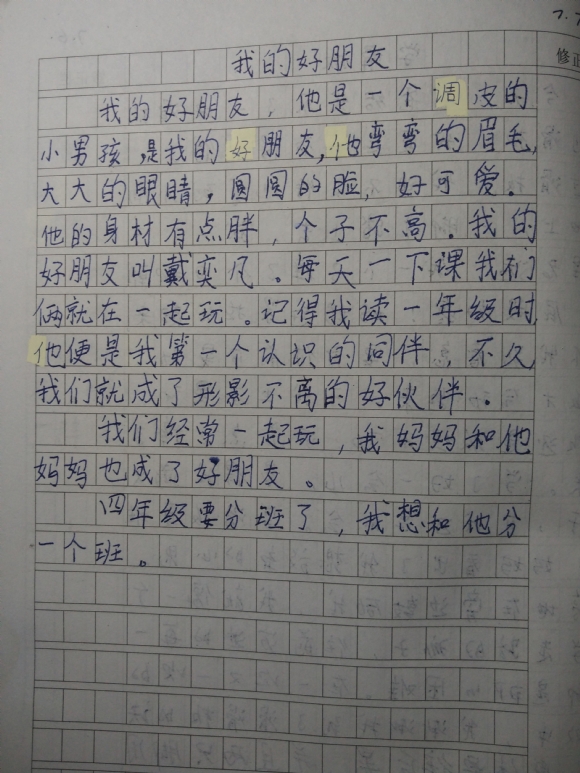 7.7
修正
我的好朋友
我的好朋友，他是一个调皮的
小男孩，是我的好朋友，他弯弯的眉毛，
大大的眼睛，圆圆的脸，好可爱。
他的身材有点胖，个子不高。我的
好朋友叫戴奕凡。每天一下课我们
俩就在一起玩。记得我读一年级时，
他便是我第一个认识的同伴，不久
我们就成了形影不离的好伙伴。
我们经常一起玩，我妈妈和他
妈妈也成了好朋友。
四年级要分班了，我想和他分
一个班。